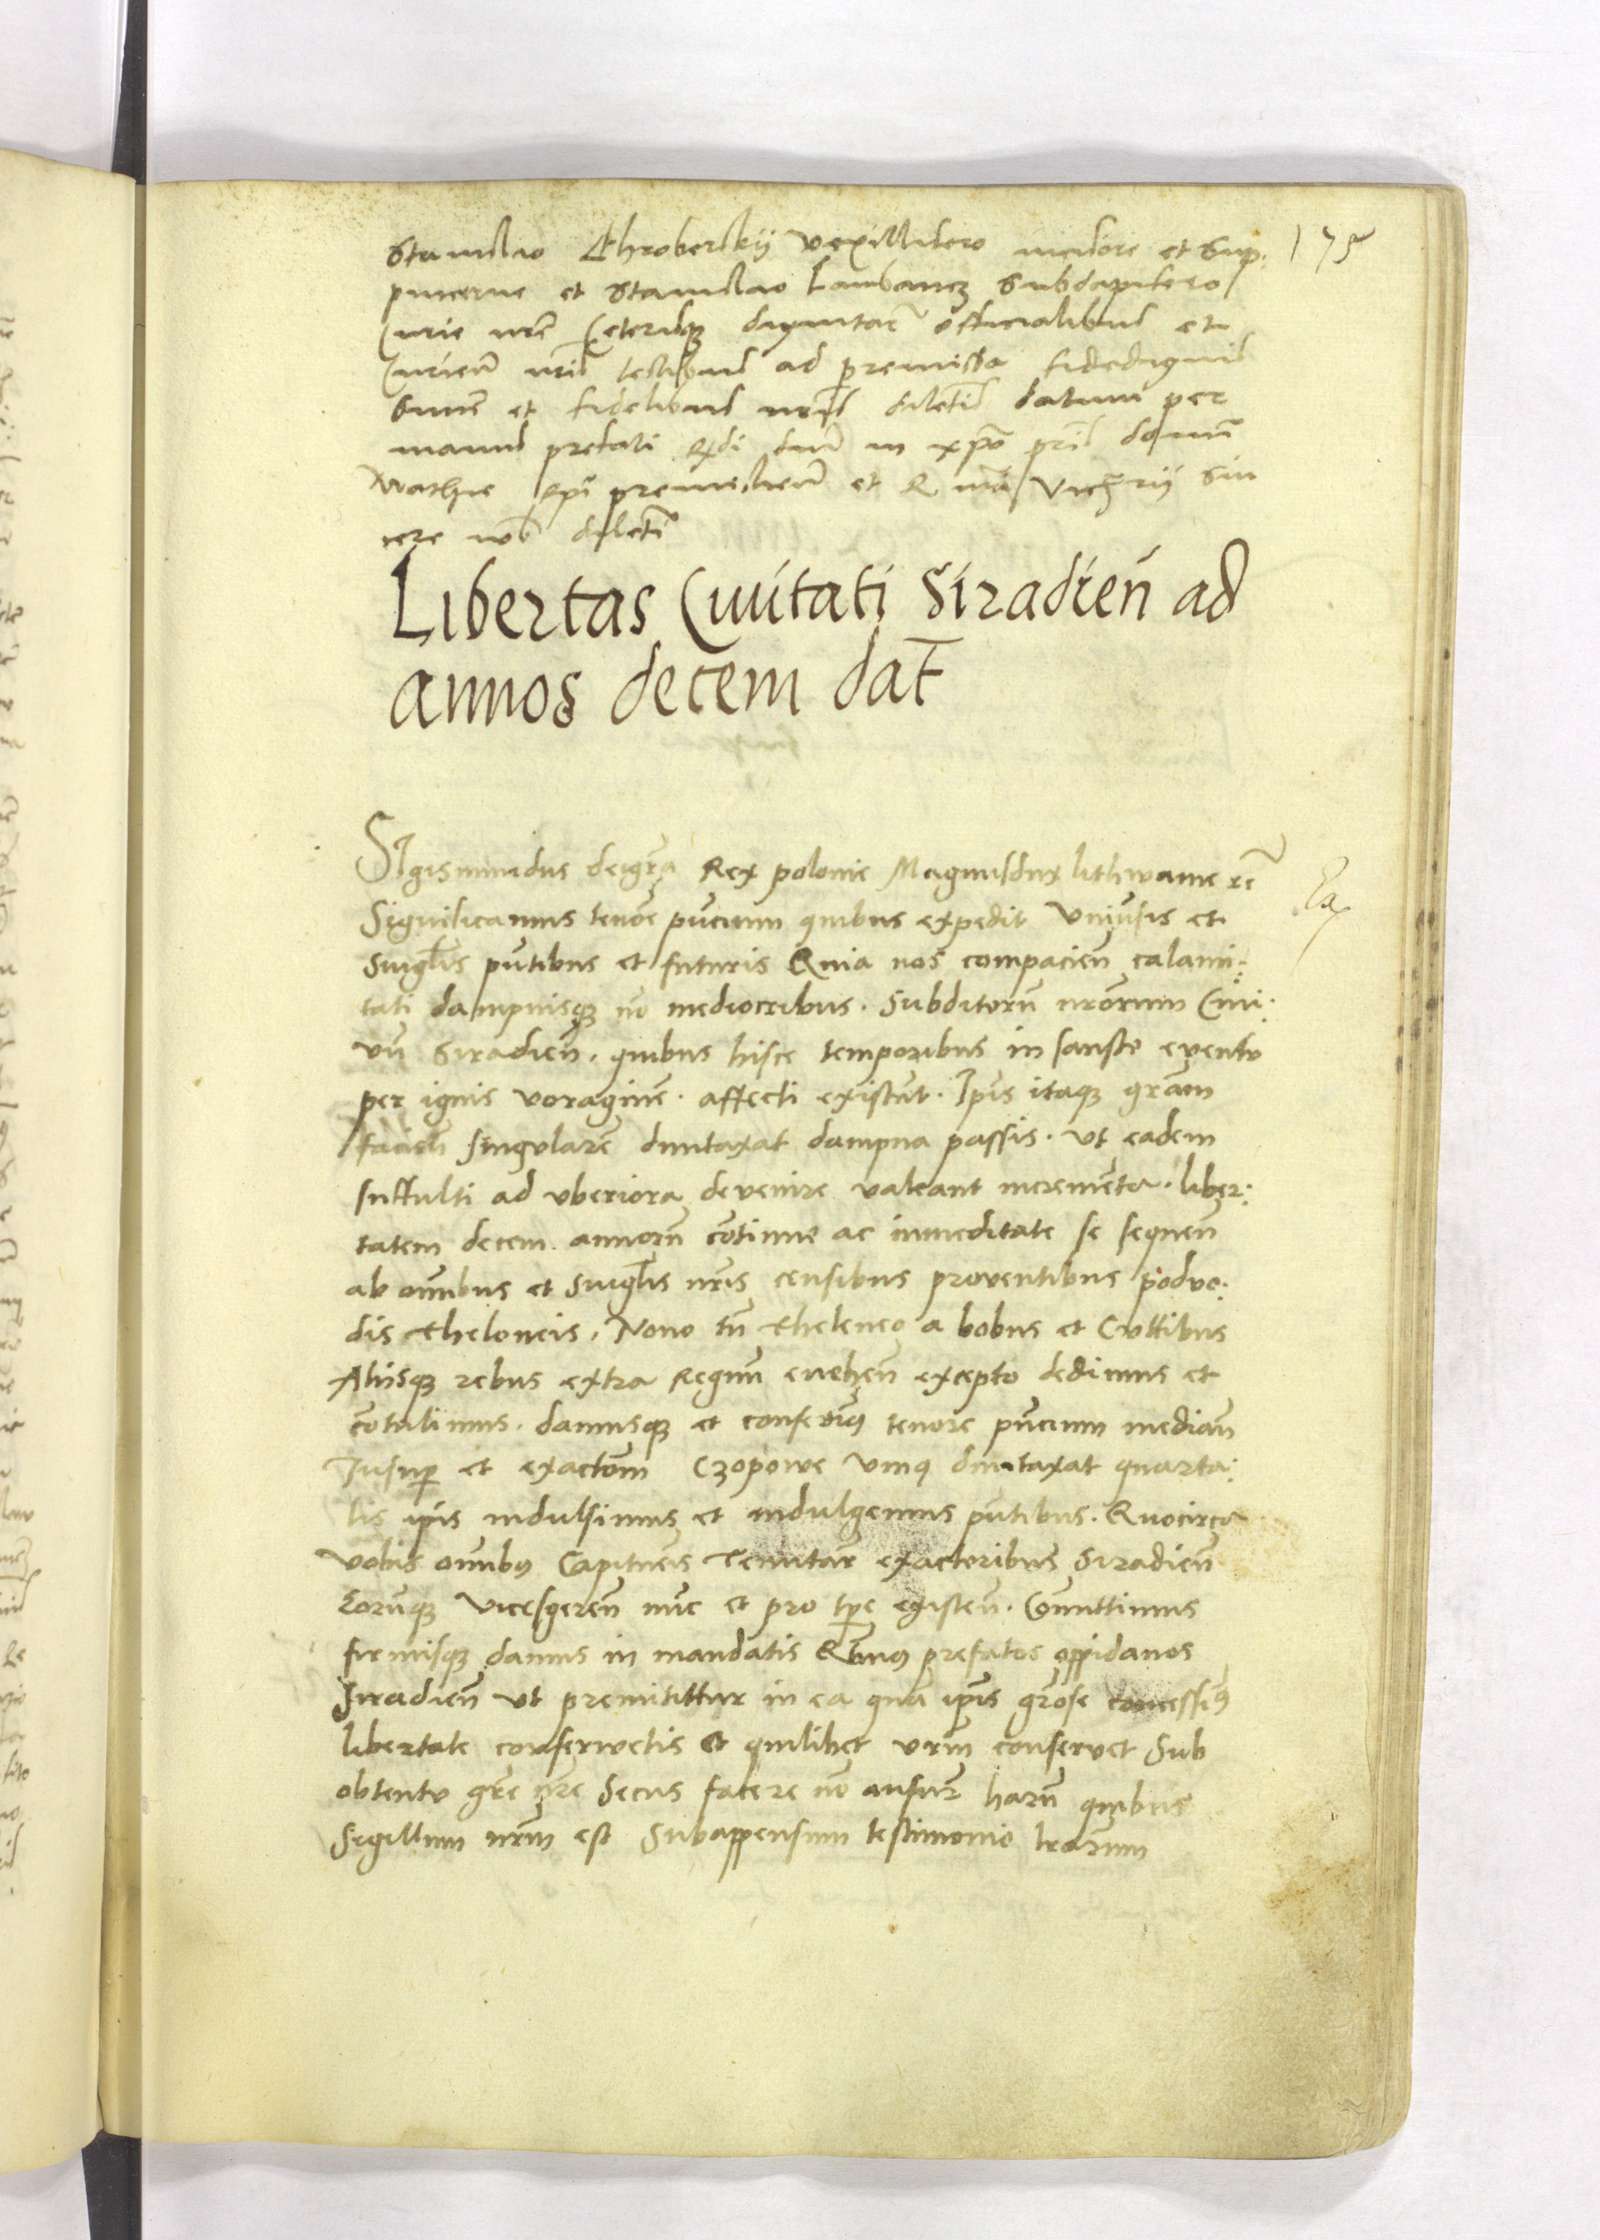 Stanislao Chroberskij vexillifero minore et Sup-
pincerne et Stanislao Lambancz Subdapifero
Curie nre Ceterisque dignitar officialibus et
Curien nris testibus ad premissa fidedignis
Sincere et fidelibus nris dilectis datum per
manus prefati Rdi dni in xpo pris domini
Mathie Epi premislien et R. nri Viczrij Sin
cere nob dilecti
175
Libertas Civitati Siradien ad
annos decem dat
Sigismundus dei gra Rex polonie Magnusdux lithwanie rc
Significamus tenore pncium quibus expedit vniusis et
Singlis pntibus et futuris Quia nos compacien calami:
tati dampnisque no mediocribus. Subditoru nrorum Civi:
vm Siradien. quibus hisce temporibus infausto eventu
per ignis voragine. affecti existut. Ipis itaque gram
facien singulare duntaxat dampna passis. ut eadem
suffulti ad vberiora devenire valeant incrementa. liber:
tatem decem annoru cotinue ac inmeditate se sequen
ab omibus et Singlis nris censibus proventibus podvo:
dis theloneis. Nouo tn theleneo a bobus et Cuttibus
Aliisque rebus extra Regnu evehen excepto dedimus et
cotulimus. damusque et conferimus tenore pncium median
Insup et exactom Czopowe vnius duntaxat quarta:
lis ipis indulsimus et indulgemus pntibus. Quocirca
vobis omibus Capitneis Tenutar exactoribus Siradien
Eorumque vicesgeren nuc et pro tpe existen. Comittimus
firmisque damus in mandatis Qtnus prefatos oppidanos
Siradien ut premittitur in ea qua ipis grose concessimus
libertate conservetis et quilibet vrm conservet Sub
obtentu gre nre Secus facere no ausur haru quibus
Sigillum nrm est Subappensum testimonio lrarum